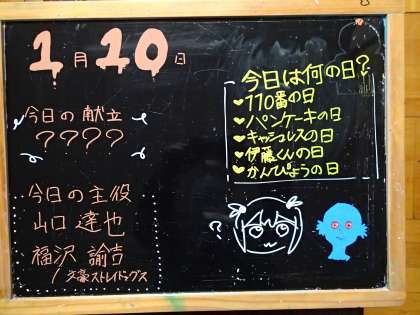 1月10日
今日の献立
？？？？
今日の主役
山口達也
福沢諭吉
文豪ストレイドッグス
今日は何の日？
110番の日
パンケーキの日
キャッシュレスの日
伊藤くんの日
かんぴょうの日
？